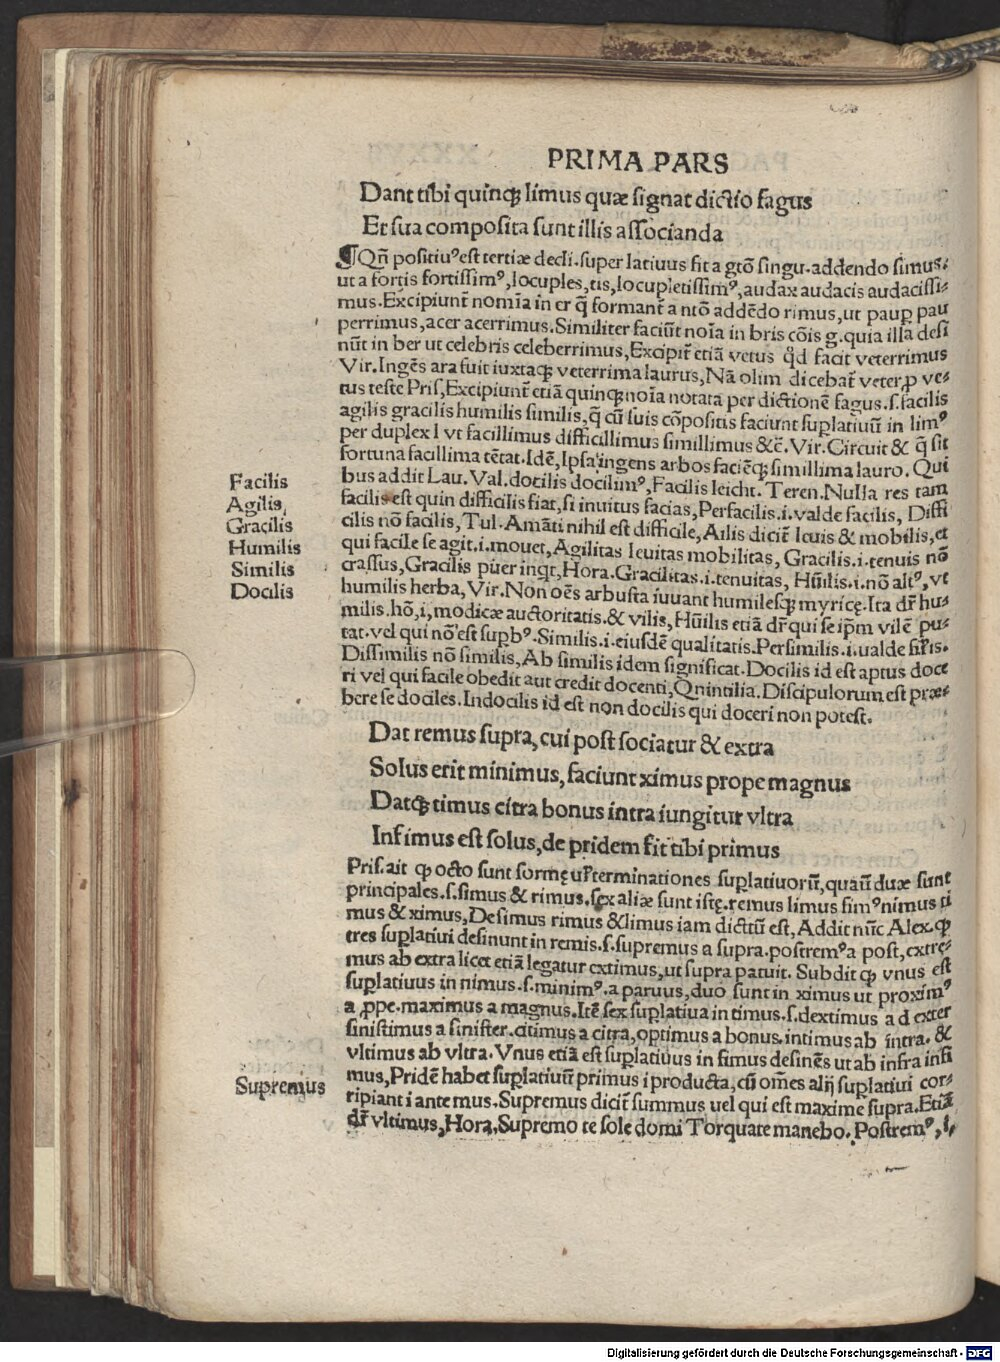 PRIMA PARS
Dant tibi quinqꝫ limus quæ signat dictio fagus
Et sua composita sunt illis associanda
¶Qñ positiuꝰ est tertiæ decli. super latiuus fit a gtõ singu. addendo simus:
ut a fortis fortissimꝰ, locuples, tis, locupletissimꝰ, audax audacis audacissi⸗
mus. Excipiunt᷑ nomĩa in er q̃ formant᷑ a ntõ addẽdo rimus, ut paup̲ pau
perrimus, acer acerrimus. Similiter faciũt noĩa in bris cõis g. quia illa desi
nũt in ber ut celebris celeberrimus, Excipit᷑ etiã vetus qd̛ facit veterrimus
Vir. Ingẽs ara fuit iuxtaqꝫ veterrima laurus, Nã olim dicebat᷑ veter ꝓ ve⸗
tus teste Pris, Excipiunt᷑ etiã quinqꝫ noĩa notata per dictionẽ fagus. s. facilis
agilis gracilis humilis similis, q̃ cũ suis cõpositis faciunt suplatiuũ in limꝰ
per duplex l vt facillimus difficillimus simillimus &c̃. Vir. Circuit & q̃ sit
fortuna facillima tẽtat. Idẽ, Ipsa ingens arbos faciẽqꝫ simillima lauro. Qui
bus addit Lau. Val. docilis docilimꝰ, Facilis leicht. Teren. Nulla res tam
facilis est quin difficilis fiat, si inuitus facias, Perfacilis .i. valde facilis, Diffi
cilis nõ facilis, Tul. Amãti nihil est difficile, Ailis dicit᷑ leuis & mobilis, et
qui facile se agit .i. mouet, Agilitas leuitas mobilitas, Gracilis .i. tenuis nõ
crassus, Gracilis puer inqt, Hora. Gracilitas .i. tenuitas, Hũilis .i. nõ altꝰ, vt
humilis herba, Vir. Non oẽs arbusta iuuant humilesqꝫ myricę. Ita dr̃ hu⸗
milis. hõ, i, modicæ auctoritatis. & vilis, Hũilis etiã dr̃ qui se ip̃m vilẽ pu⸗
tat. vel qui nõ est supbꝰ. Similis .i. eiusdẽ qualitatis. Persimilis .i. ualde sil̃is.
Dissimilis nõ similis, Ab similis idem significat. Docilis id est aptus doce
ri vel qui facile obedit aut credit docenti, Qnintilia. Discipulorum est præ⸗
bere se dociles. Indocilis id est non docilis qui doceri non potest.
Facilis
Agilis,
Gracilis
Humilis
Similis
Docilis
Dat remus supra, cui post sociatur & extra
Solus erit minimus, faciunt ximus prope magnus
Datqꝫ timus citra bonus intra iungitur vltra
Infimus est solus, de pridem fit tibi primus
Pris. ait ꝙ octo sunt formę ul̃ terminationes suplatiuorũ, quaũ duæ sunt
principales. s. simus & rimus. sex aliæ sunt istę. remus limus simꝰ nimus ti
mus & ximus, De simus rimus & limus iam dictũ est, Addit nũc Alex. ꝙ
tres suplatiui desinunt in remis. s. supremus a supra. postremꝰ a post, extre⸗
mus ab extra licet etiã legatur extimus, ut supra patuit. Subdit ꝙ vnus est
suplatiuus in nimus. s. minimꝰ. a paruus, duo sunt in ximus ut proximꝰ
a ꝓpe. maximus a magnus. Itẽ sex suplatiua in timus. s. dextimus a dexter
sinistimus a sinister. citimus a citra, optimus a bonus. intimus ab intra. &
vltimus ab vltra. Vnus etiã est suplatiuus in fimus desinẽs ut ab infra infi
mus, Pridẽ habet suplatiuũ primus i producta, cũ om̃es alij suplatiui cor⸗
ripiant i ante mus. Supremus dicit᷑ summus uel qui est maxime supra. Etiã
dr̃ vltimus, Hora. Supremo te sole domi Torquate manebo. Postremꝰ, i,
Supremus
Digitalisierung gefördert durch die Deutsche Forschungsgemeinschaft - DFG